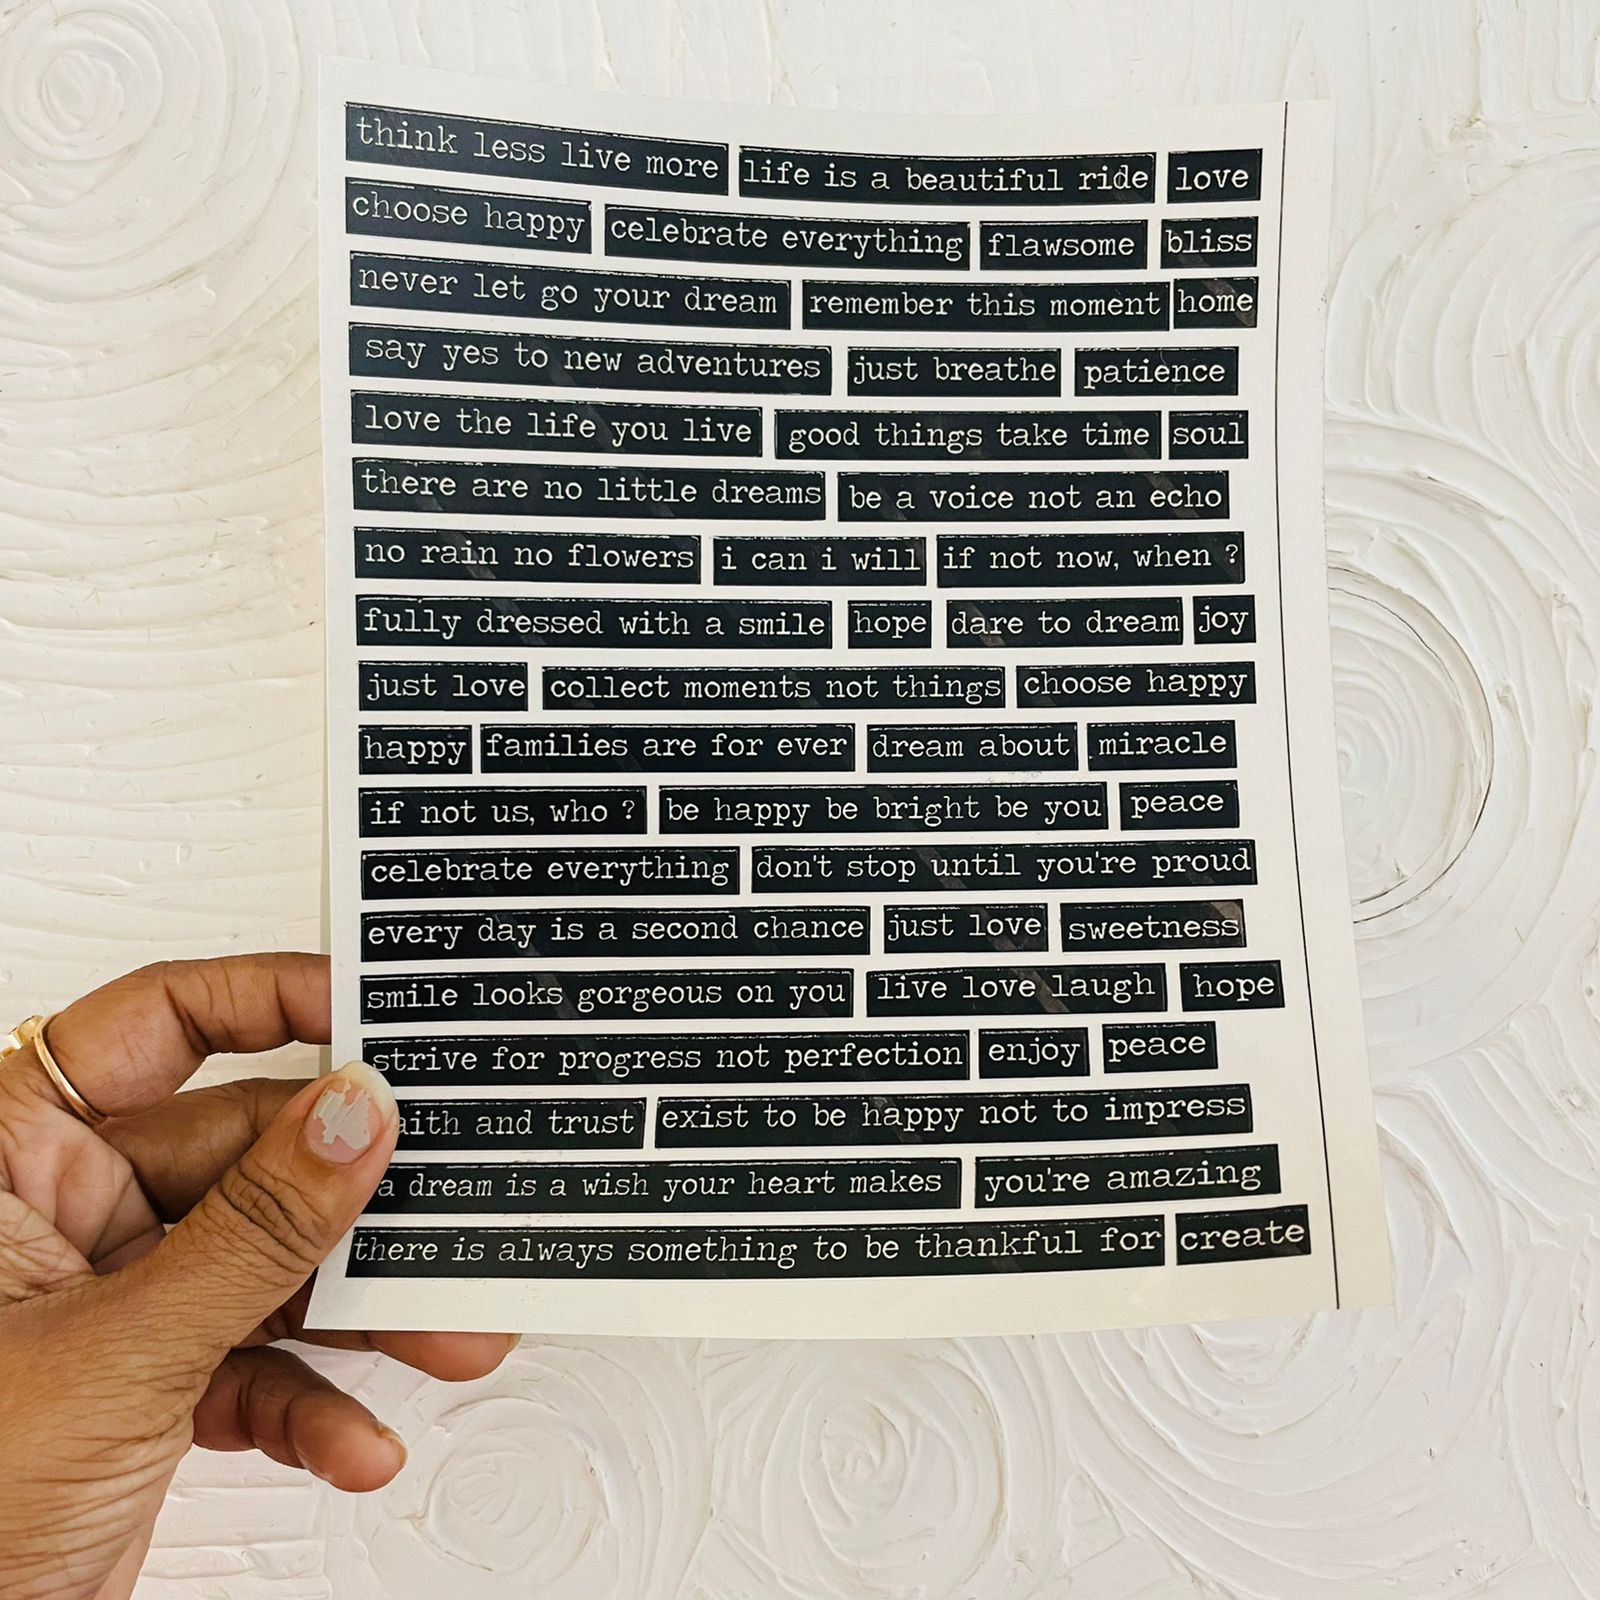 think less live more life is a beautiful ride love
choose happy celebrate everything flawsome bliss
never let go your dream remember this moment home
say yes to new adventures just breathe patience
love the life you live good things take time soul
there are no little dreams be a voice not an echo
no rain no flowers i can i will if not now, when ?
fully dressed with a smile hope dare to dream joy
just love collect moments not things choose happy
happy families are for ever dream about miracle
if not us, who ? be happy be bright be you peace
celebrate everything don't stop until you're proud
every day is a second chance just love sweetness
smile looks gorgeous on you live love laugh hope
strive for progress not perfection enjoy peace
aith and trust exist to be happy not to impress
a dream is a wish your heart makes you're amazing
there is always something to be thankful for create